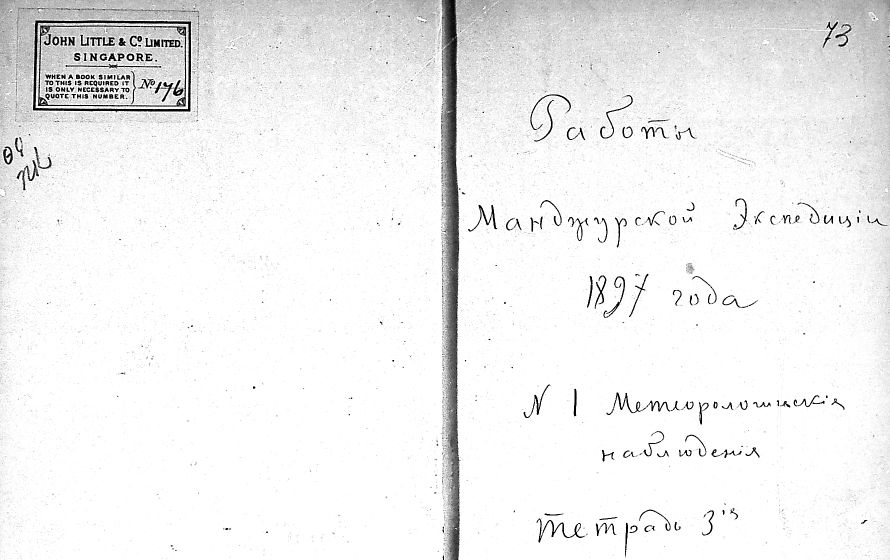 JOHN LITTLE & Co. LIMITED.
SINGAPORE.
WHEN A BOOK SIMILAR
TO THIS IS REQUIRED IT
IS ONLY NECESSARY TO
QUOTE THIS NUMBER.
No 176
73
Работы
Манджурской Экспедиціи
1897 года
N 1 Метеорологическія
наблюденія
тетрадь 3ія